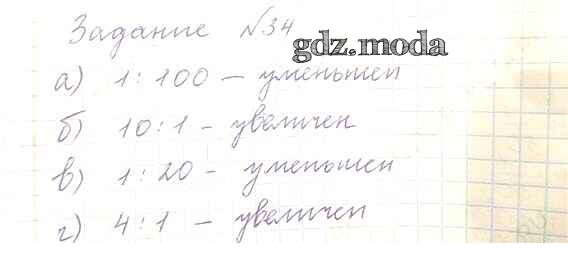 Задание №34
gdz.moda
а) 1:100 - уменьшен
б) 10:1 - увеличен
в) 1:20 - уменьшен
г) 4:1 - увеличен